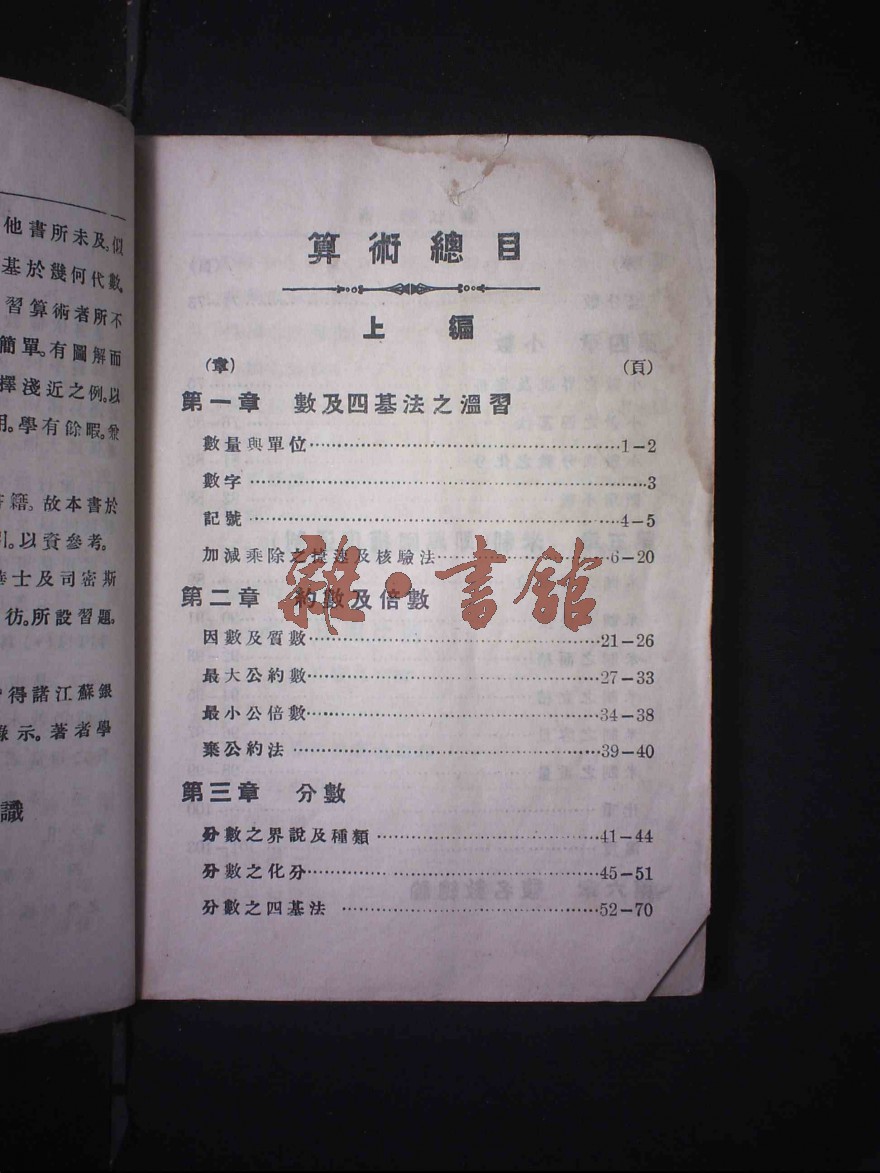 他書所未及。似
基於幾何代數。
習算術者所不
簡單。有圖解而
擇淺近之例。以
用。學有餘暇。
籍。故本書於
引。以資參考。
士及司密斯
彷。所設習題。
得諸江蘇銀
示。著者學
識
算術總目
上編
(章) (頁)
第一章 數及四基法之溫習
數量與單位⋯⋯1-2
數字⋯⋯3
記號⋯⋯4-5
加減乘除之捷速及核驗法⋯⋯6-20
第二章 約數及倍數
因數及質數⋯⋯21-26
最大公約數⋯⋯27-33
最小公倍數⋯⋯34-38
棄公約法⋯⋯39-40
第三章 分數
分數之界說及種類⋯⋯41-44
分數之化分⋯⋯45-51
分數之四基法⋯⋯52-70
雜·書館